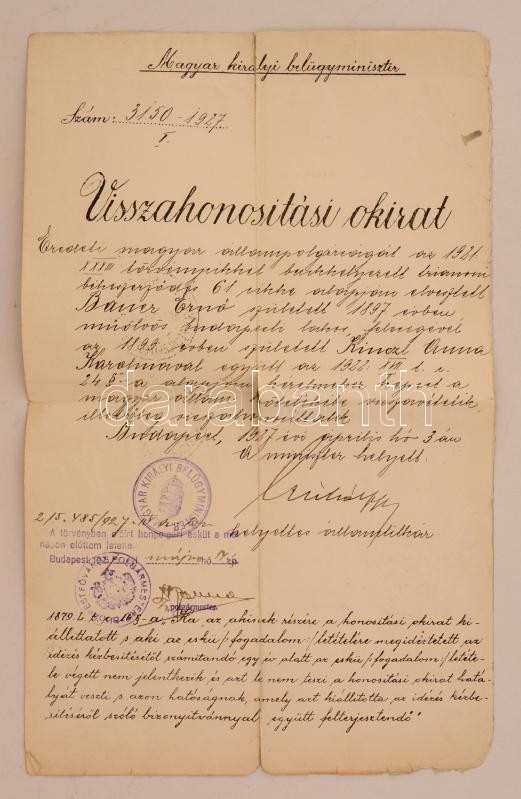 Magyar királyi belügyminiszter
Szám: 3150-1927.
I.
Visszahonosítási okirat
Eredeti magyar állampolgárságát az 1921.
XXXIII törvénycikkel becikkelyezett trianoni
békeszerződés 61 cikke alapján elvesztett
Bauer Ernő született 1897 évben
műötvös budapesti lakos feleségével
az 1899 évben született Kinczl Anna
Karolinával együtt az 1922. XVII t. c.
24 §-a alapján kérelmére képest a
magyar állam kötelékébe
Budapest, 1927 évi április hó 3 án
A miniszter helyett:
darabanth
MAGYAR KIRÁLYI BELÜGYMINISZTER
helyettes államtitkár.
A törvényben előírt honpolgári esküt a mai
napon előttem letette.
Budapest, 192 május hó
polgármester.
1879. L. t. c. 16 §-a. „Ha az, akinek részére a honosítási okirat ki-
állíttatott s aki az eskü /:fogadalom:/ letételére megidéztetett az
idézés kézbesítésétől számítandó egy év alatt az eskü /:fogadalom:/ letéte-
le végett nem jelentkezik és azt le nem teszi a honosítási okirat hatá-
lyát veszti s azon hatóságnak, amely azt kiállította, az idézés kézbe-
sítéséről szóló bizonyítvánnyal együtt felterjesztendő"